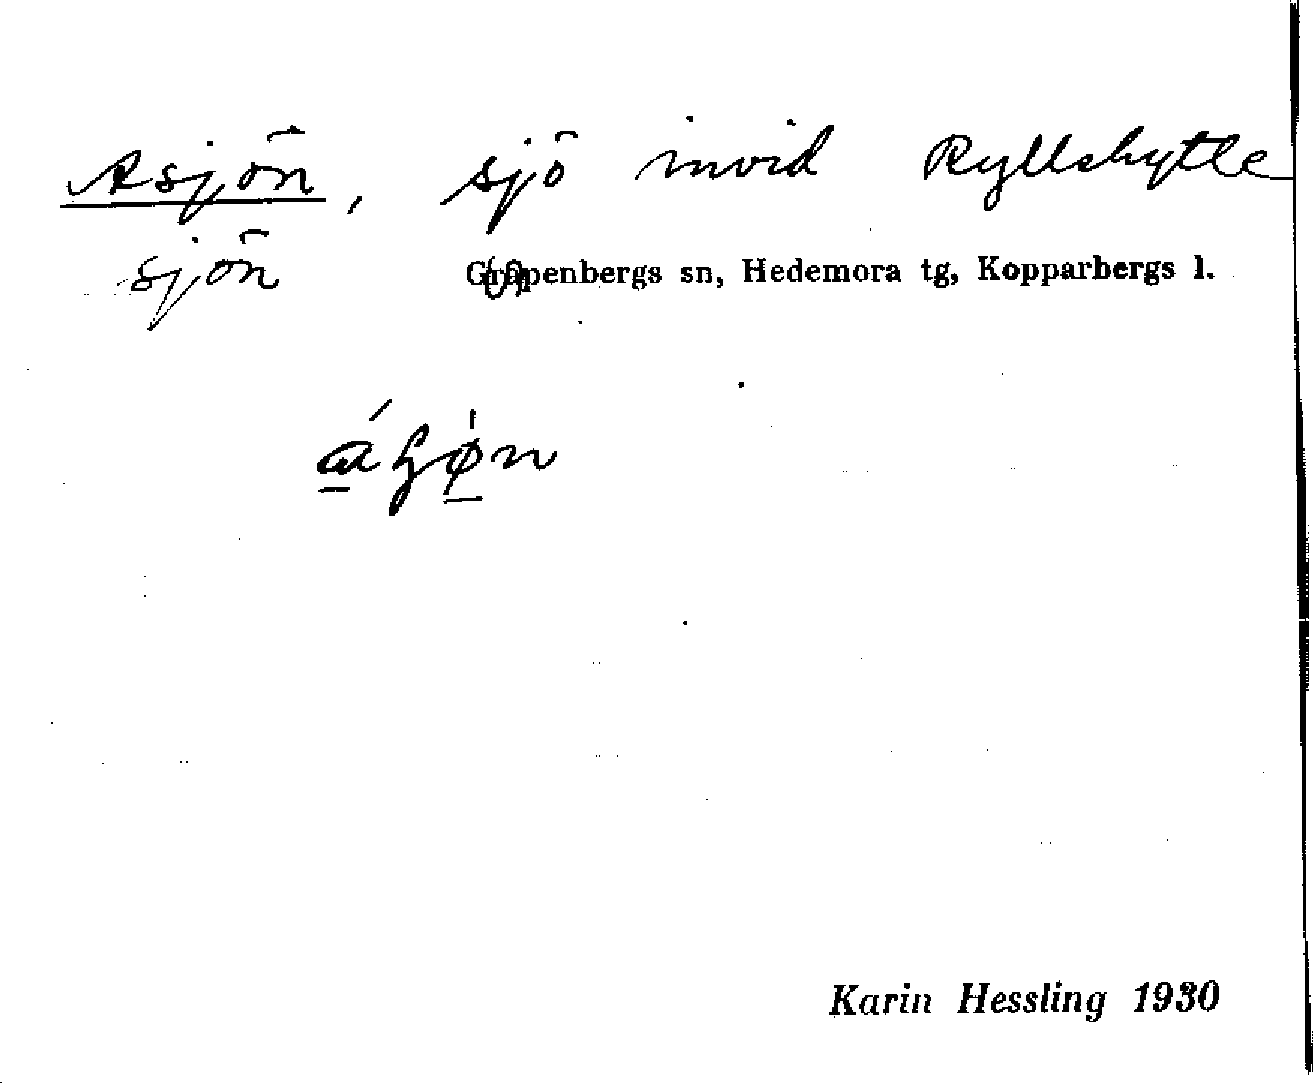 Asjön, sjö invid Ryllshytte
sjön Grapenbergs sn, Hedemora tg, Kopparbergs l.
Karin Hessling 1930